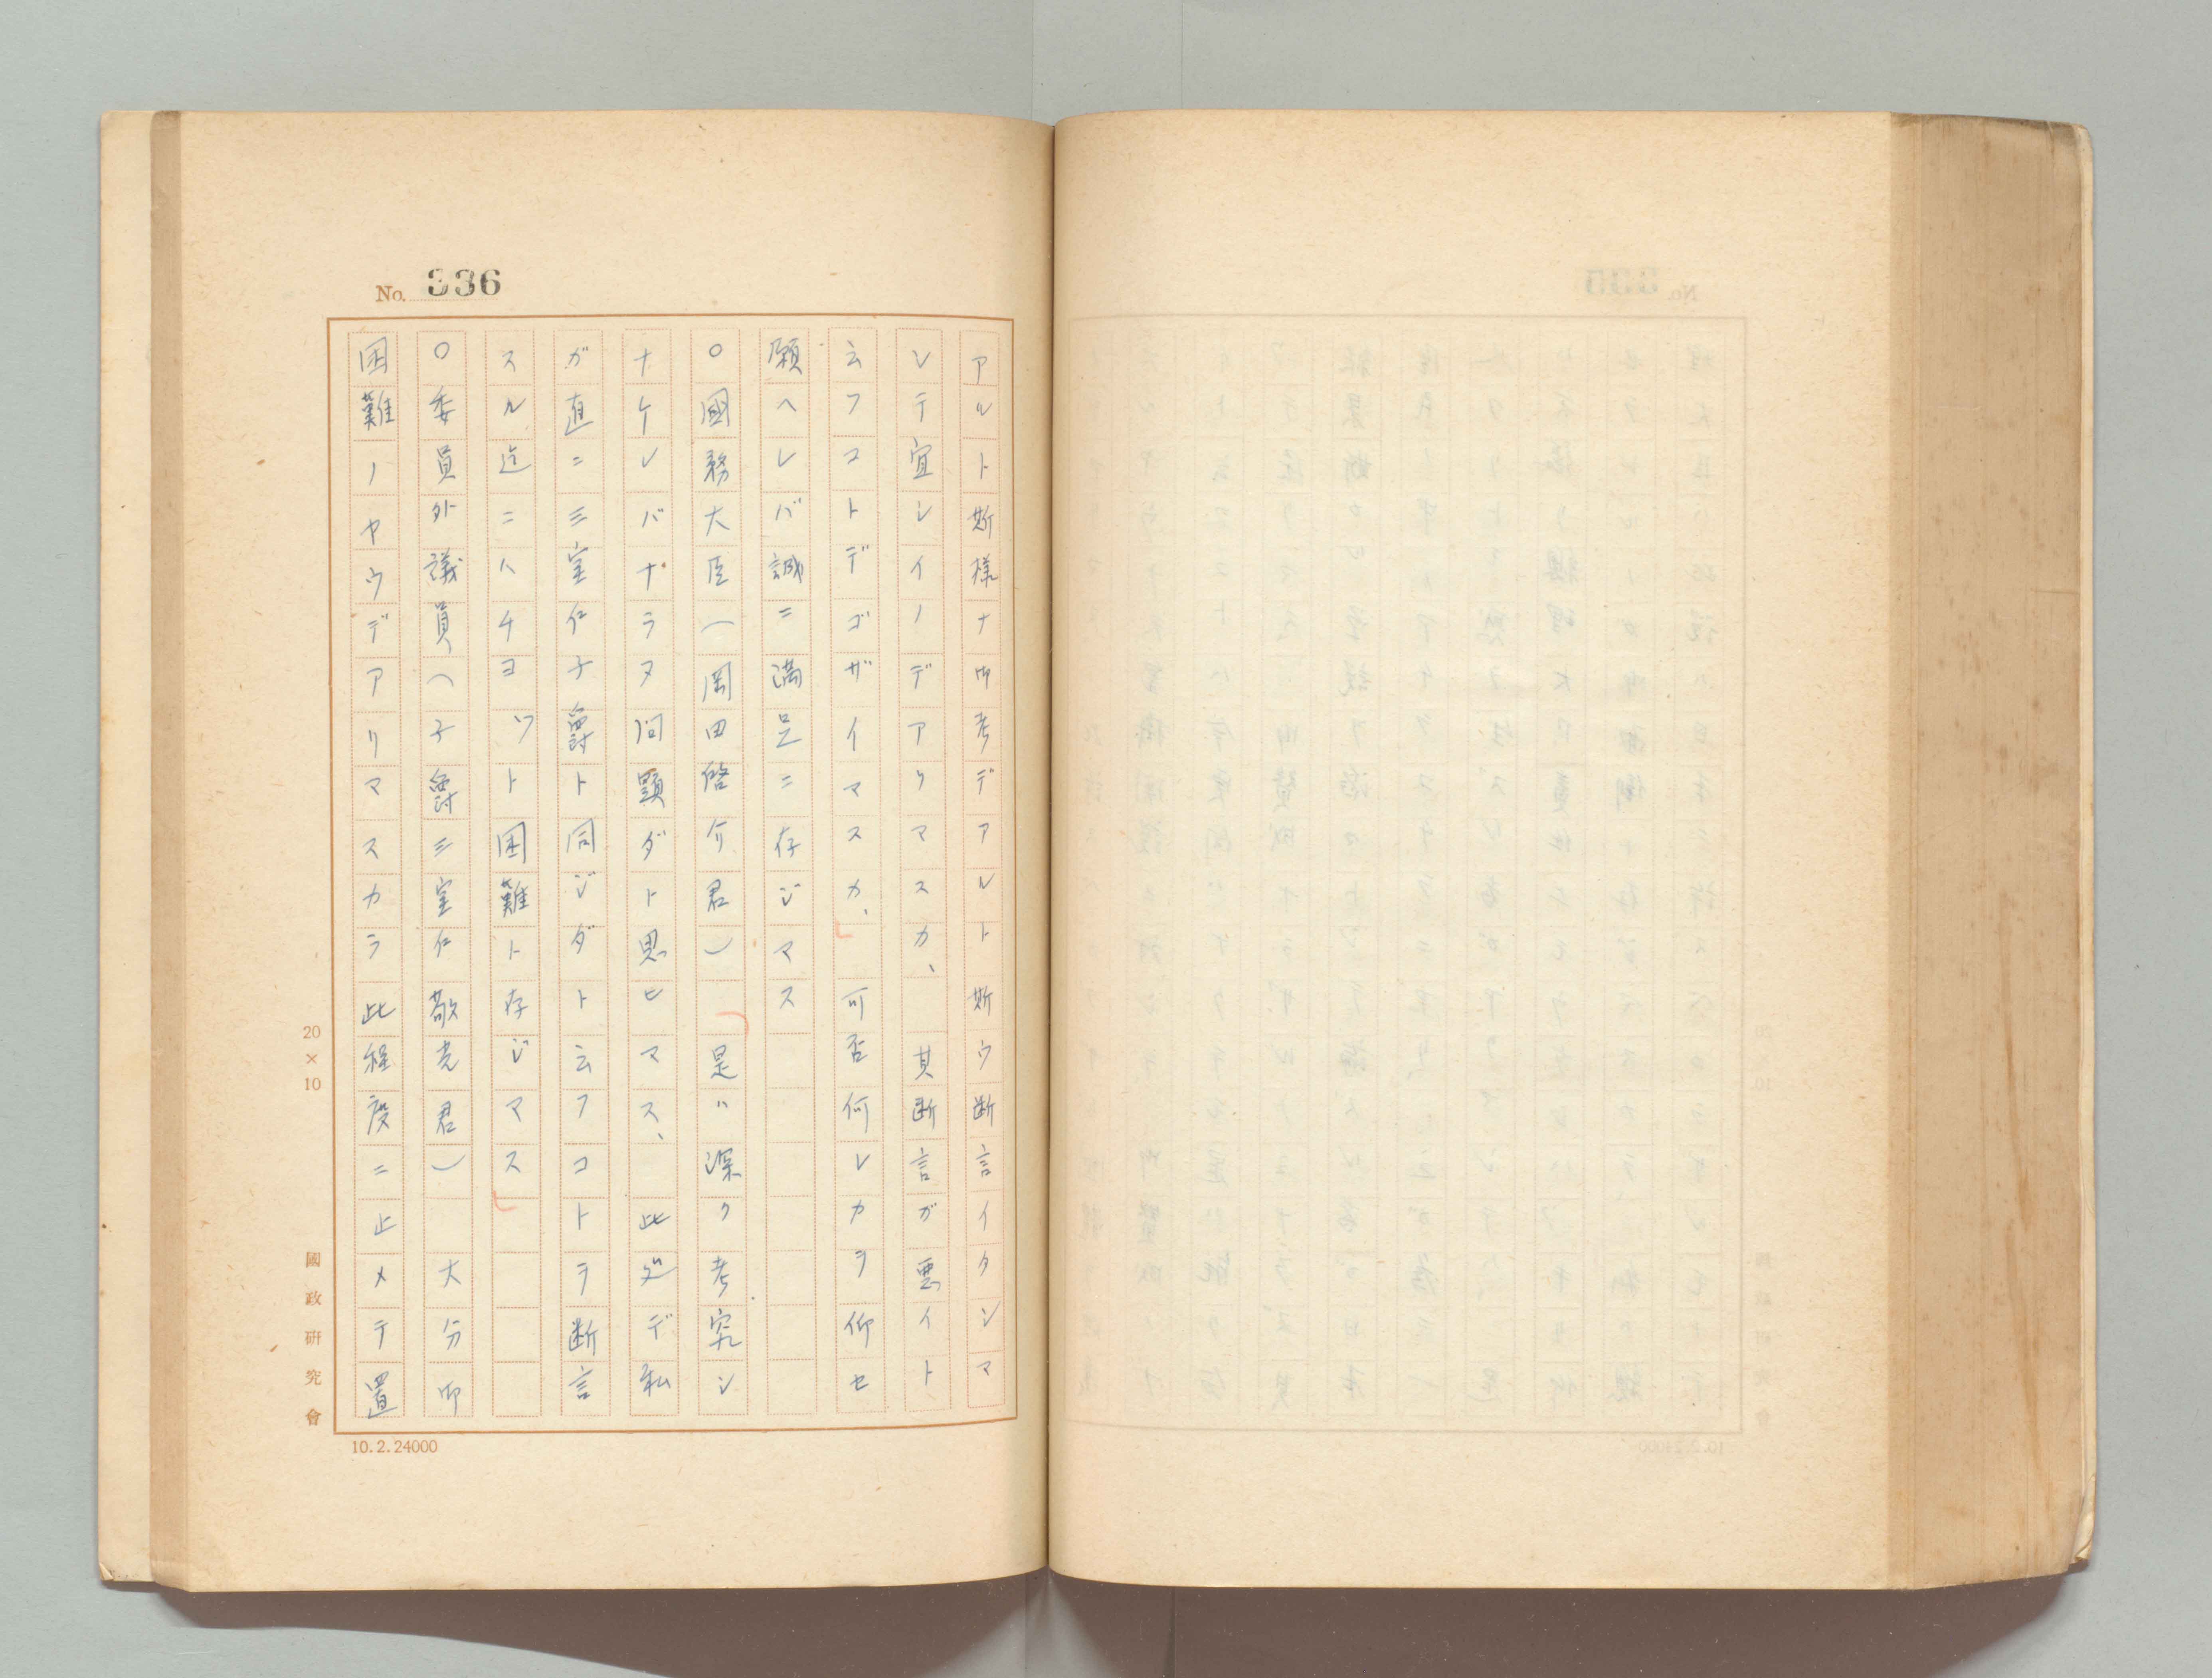 No. 336
アルト斯様ナ御考デアルト斯ウ断言イタシマ
シテ宜シイノデアリマスカ、其断言ガ悪イト
云フコトデゴザイマスカ、可否何レカヲ仰セ
願ヘレバ誠ニ満足ニ存ジマス
○國務大臣(岡田啓介君) 是ハ深ク考究シ
ナケレバナラヌ問題ダト思ヒマス、此処デ私
ガ直ニ三室仁子爵ト同ジダト云フコトヲ断言
スル迄ニハチヨツト困難ト存ジマス
○委員外議員(子爵三室仁敬光君) 大分御
困難ノヤウデアリマスカラ此程度ニ止メテ置
20×10
國政研究會
10.2.24000